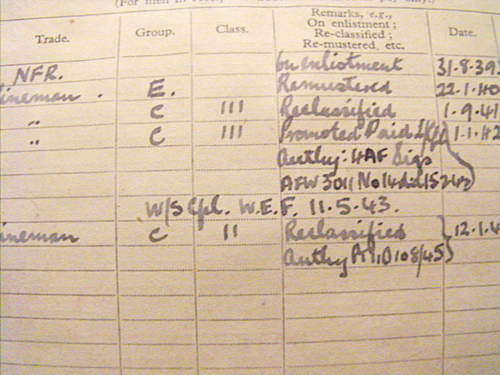 (For men in
Trade. Group. Class. Remarks, e.g., On enlistment; Re-classified; Re-mustered, etc. Date.
NFR. On enlistment 31.8.39
ineman . E. Remustered 22.1.40
" C III Reclassified 1.9.41
" C III Promoted Paid 1.1.42
Authy: HAF Sigs
AFW 3011 No 14
W/S Cpl. W.E.F. 11.5.43.
ineman C II Reclassified 12.1.4
Authy 108/45